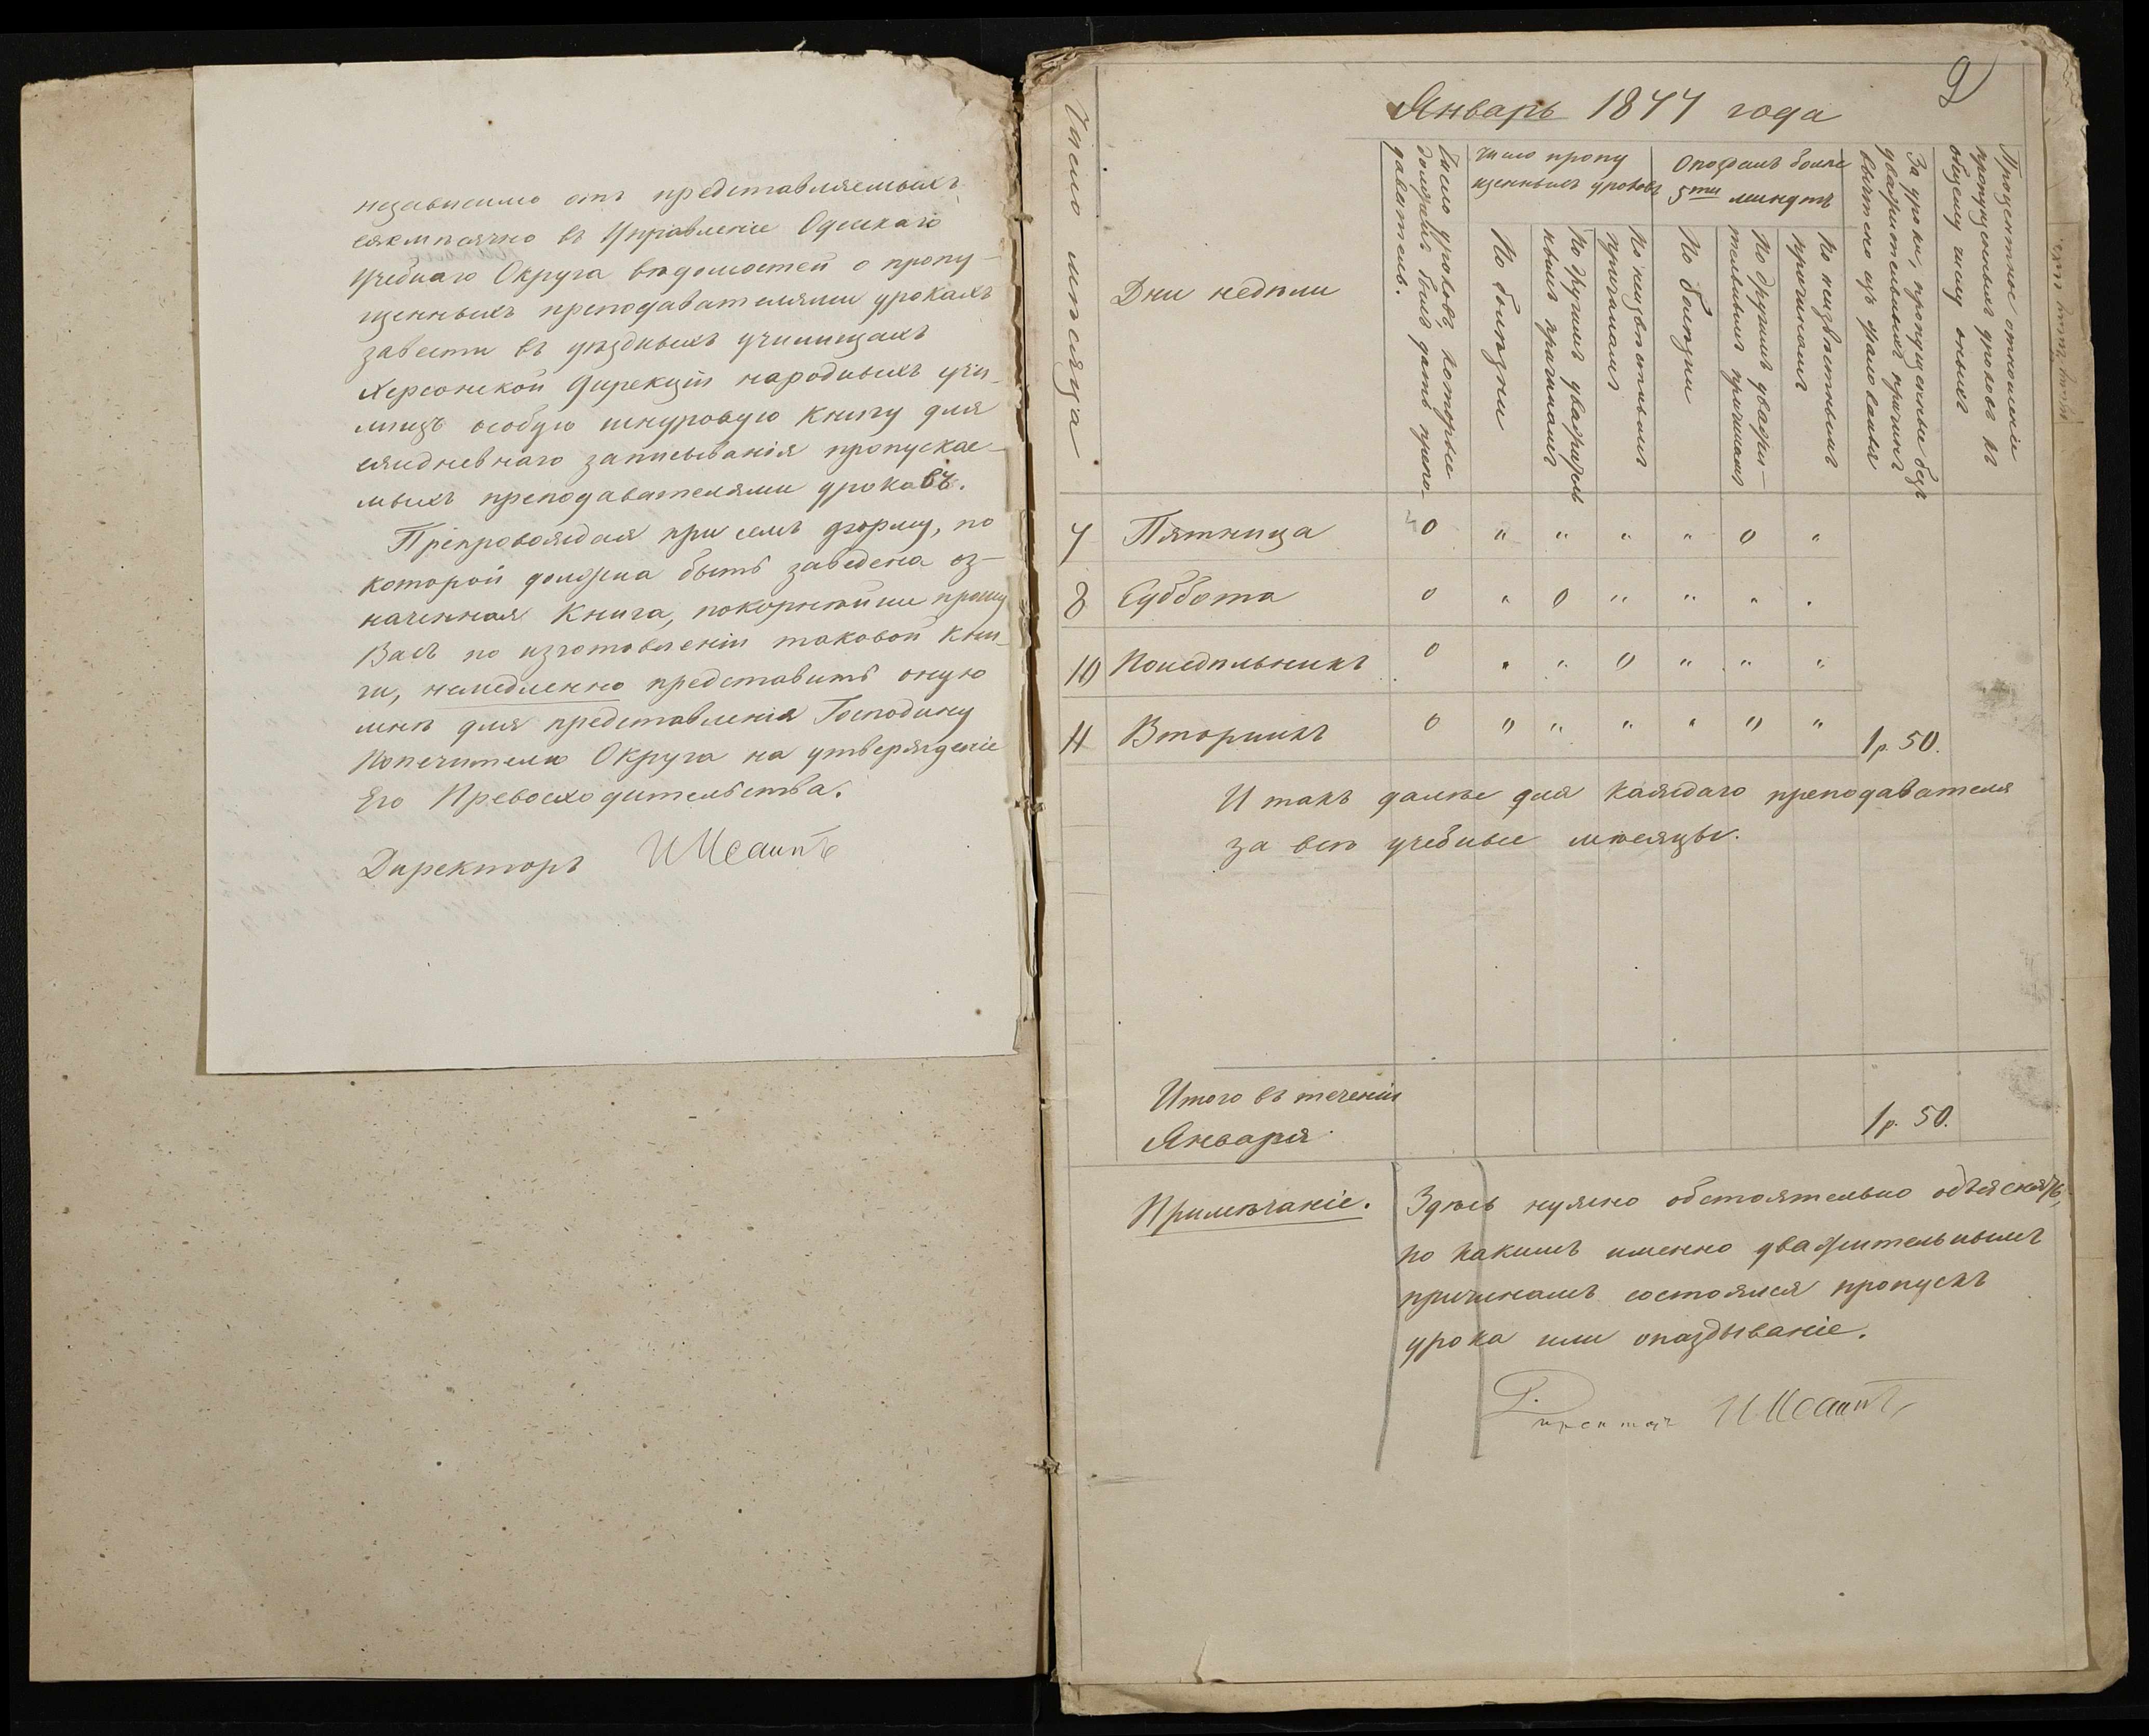 независимо отъ представляемыхъ
ежемѣсячно въ Управленіе Одесскаго
Учебнаго Округа вѣдомостей о пропу-
щенныхъ преподавателями урокахъ
завести въ уѣздныхъ училищахъ
Херсонской Дирекціи народныхъ учи-
лищъ особую шнуровую книгу для
ежедневнаго записыванія пропускае-
мыхъ преподавателями уроковъ.
Препровождая при семъ форму, по
которой должна быть заведена оз-
наченная Книга, покорнѣйше прошу
Васъ по изготовленіи таковой кни-
ги, немедленно представить оную
мнѣ для представленія Господину
Попечителю Округа на утвержденіе
Его Превосходительства.
Директоръ
2
Январь 1877 года
Число мѣсяца
Дни недѣли
Число уроковъ, которые
долженъ былъ дать препо-
даватель.
Число пропу
щенныхъ уроковъ
По болѣзни
По другимъ уважитель
нымъ причинамъ
По неизвѣстнымъ
причинамъ
Опоздалъ болѣе
5ти минутъ
По болѣзни
По другимъ уважи-
тельнымъ причинамъ
По неизвѣстнымъ
причинамъ
За уроки, пропущенные безъ
уважительныхъ причинъ
вычтено изъ жалованья
Процентное отношеніе
пропущенныхъ уроковъ къ
общему числу оныхъ
7 Пятница 0 " " " " 0 "
8 Суббота 0 " 0 " " " "
10 Понедѣльникъ 0 " " 0 " " "
11 Вторникъ 0 " " " " 0 " 1 р. 50.
И такъ далѣе для каждаго преподавателя
за всѣ учебные мѣсяцы.
Итого въ теченіи
Января 1 р. 50.
Примѣчаніе. Здѣсь нужно обстоятельно объяснять,
по какимъ именно уважительнымъ
причинамъ состоялся пропускъ
урока или опаздываніе.
Директоръ